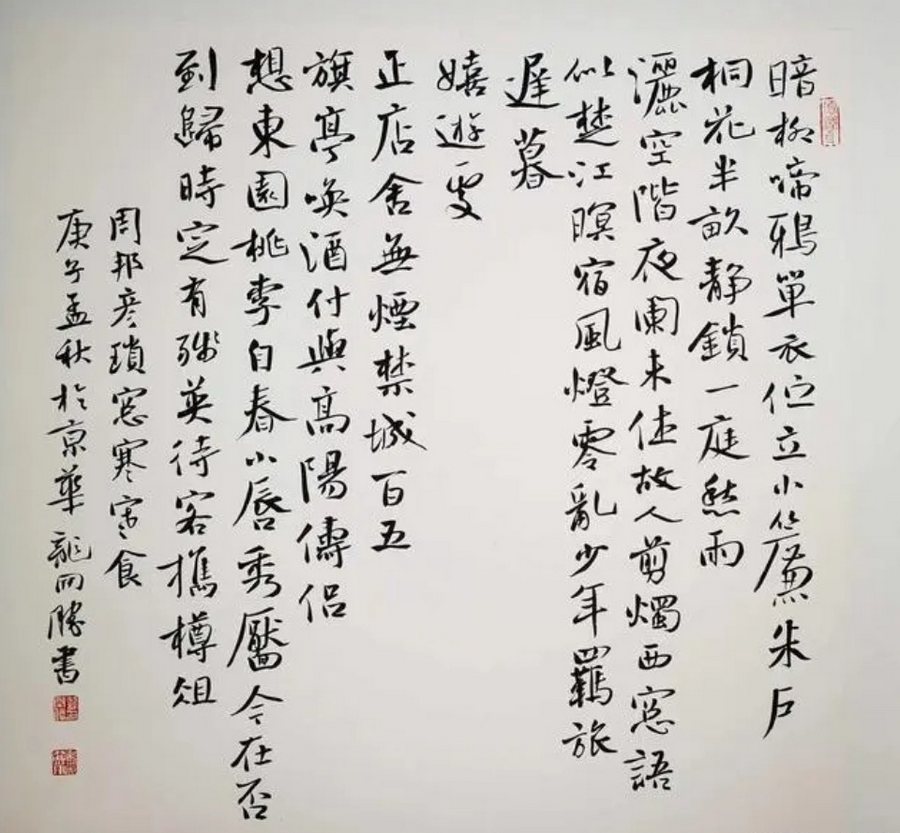 暗柳啼鴉單衣佇立小簾朱戶
桐花半畝靜鎖一庭愁雨
灑空階夜闌未休故人剪燭西窓語
似楚江暝宿風燈零亂少年羈旅
遲暮
嬉遊處
正店舍無煙禁城百五
旗亭喚酒付與高陽儔侶
想東園桃李自春小唇秀靨今在否
到歸時定有殘英待客攜樽俎
周邦彥瑣窓寒寒食
庚子孟秋於京華龍開勝書